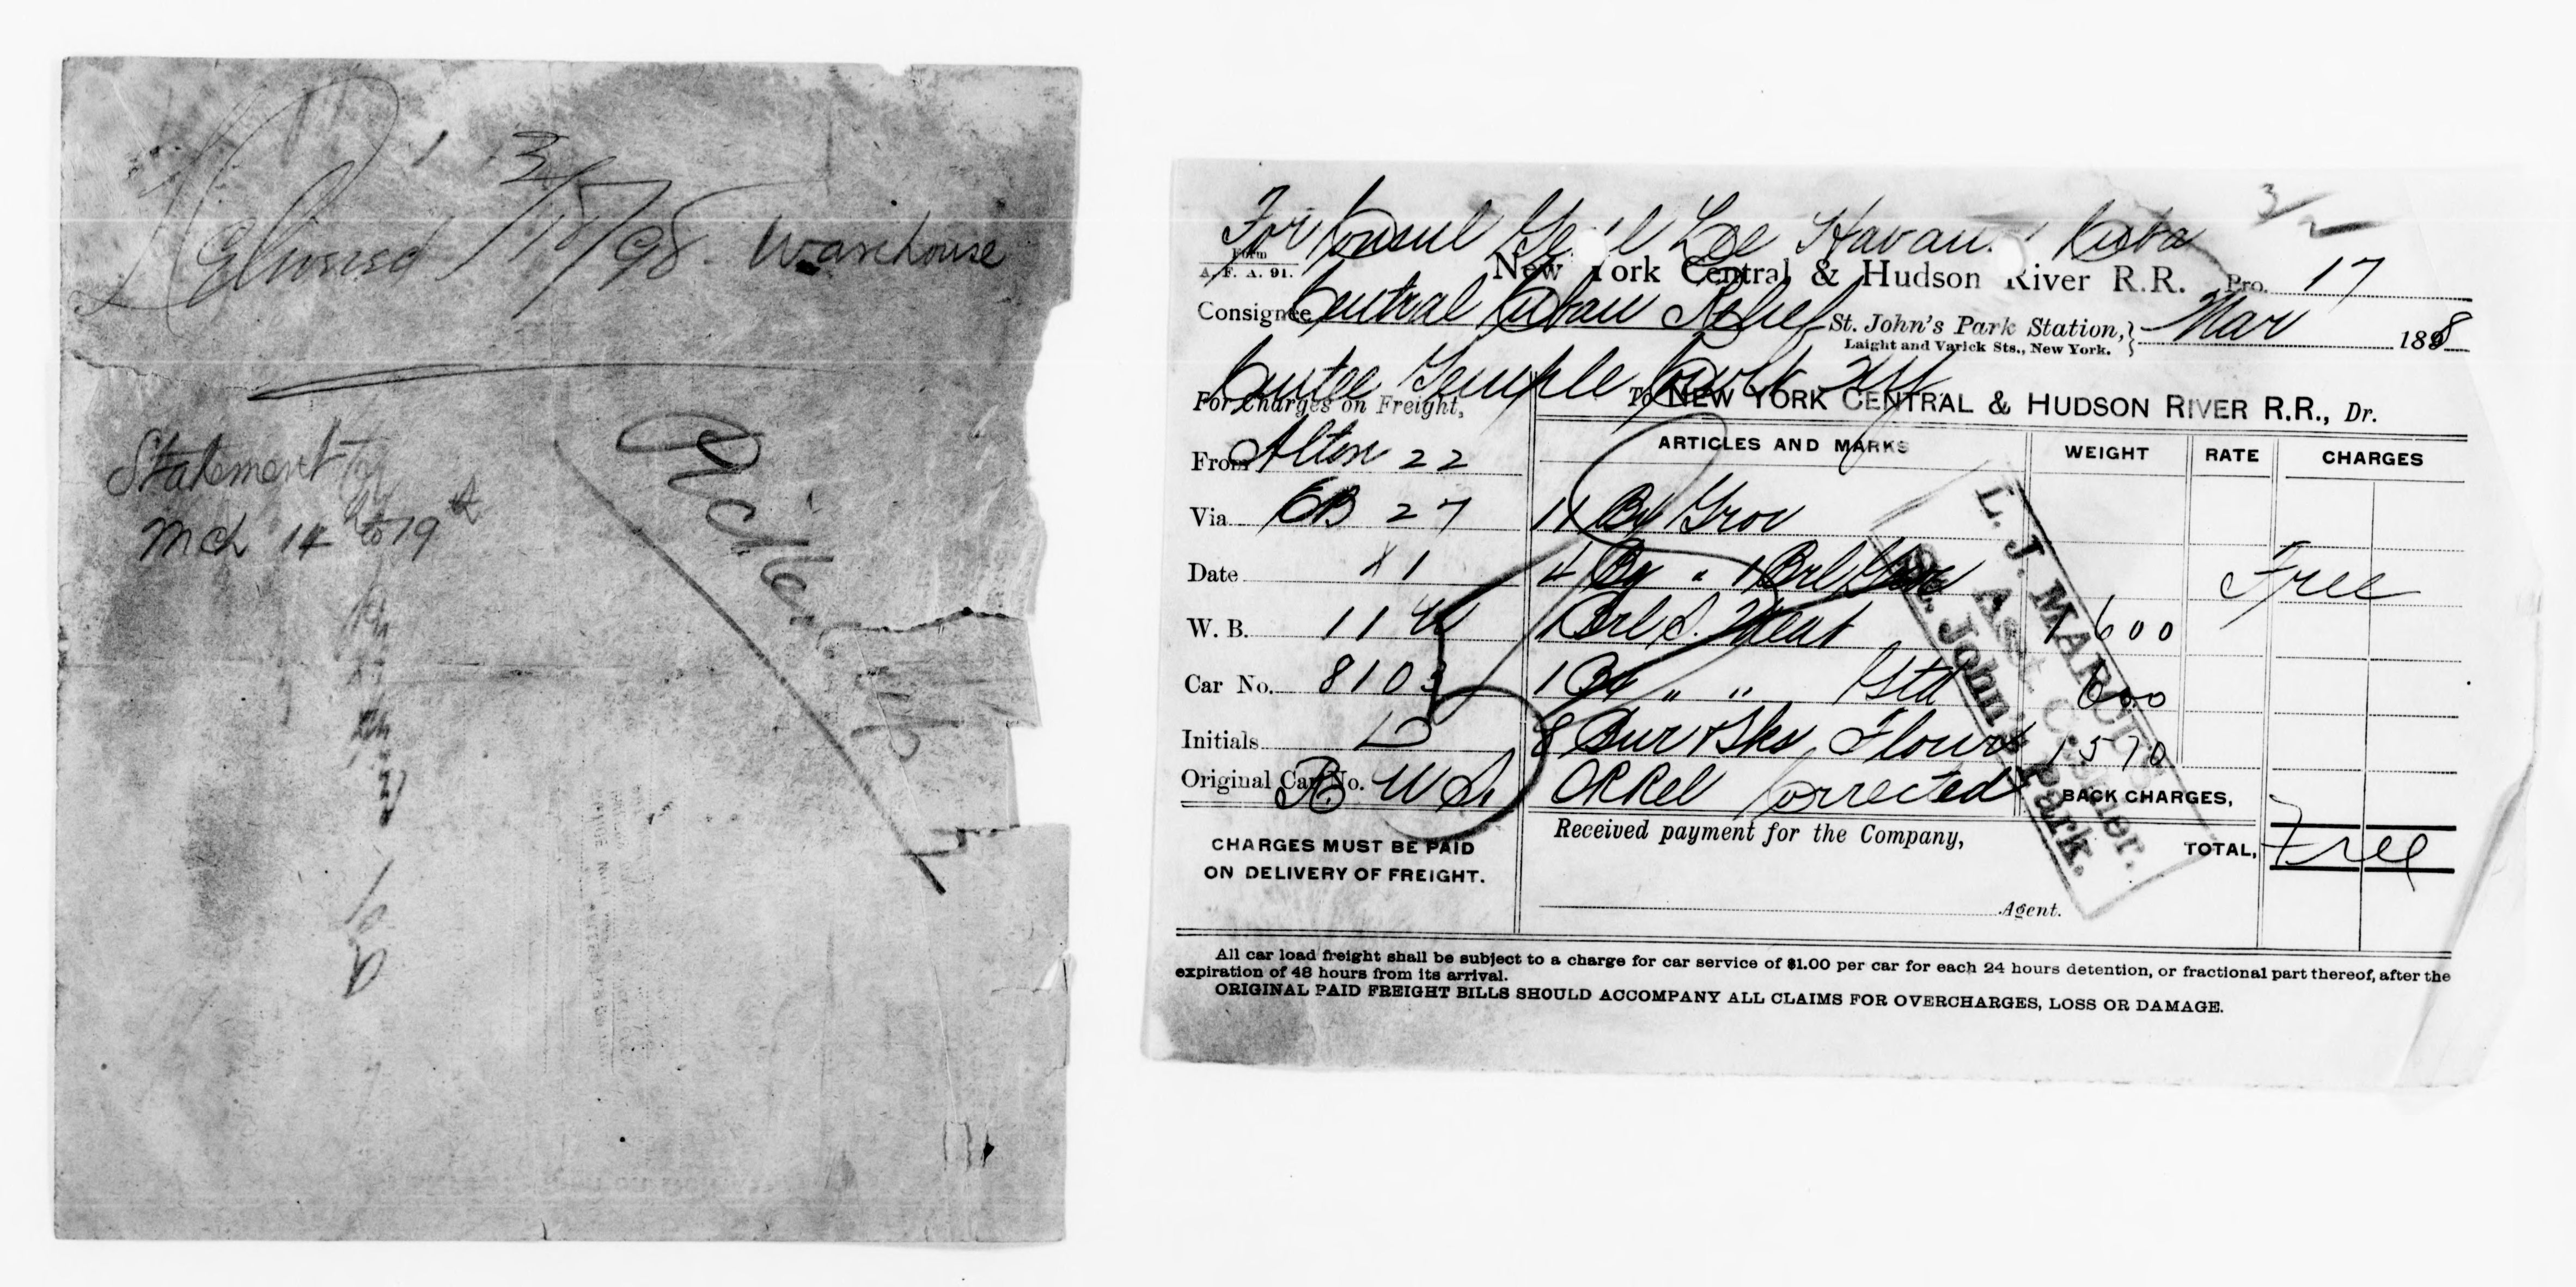 Delivered 3/18/98. Warehouse
Statement
Mch 14 to 19th
3/2
For Consul Gen'l Lee Havana Cuba
Form
A. F. A. 91.
New York Central & Hudson River R.R. Pro. 17
Consignee Central Cuban Relief
St. John's Park Station,
Laight and Varick Sts., New York.
Mar 1898
Comtee Temple Court NY
For Charges on Freight,
To NEW YORK CENTRAL & HUDSON RIVER R.R., Dr.
ARTICLES AND MARKS WEIGHT RATE CHARGES
From Alton 22
Via 27 11 Bx Groc
Date x 1 4 Bg " 1 Brl Free
W. B. 11 1 Brl S. Meat 1600
Car No. 8103 1 Bx " " 600
Initials 8 Bur + Sks Flour 1570
Original Car No. R. W. S. OR Rel Corrected BACK CHARGES,
L. J. MARCUS
Asst. Cashier.
St. John's Park.
CHARGES MUST BE PAID
ON DELIVERY OF FREIGHT.
Received payment for the Company,
TOTAL, Free
Agent.
All car load freight shall be subject to a charge for car service of $1.00 per car for each 24 hours detention, or fractional part thereof, after the
expiration of 48 hours from its arrival.
ORIGINAL PAID FREIGHT BILLS SHOULD ACCOMPANY ALL CLAIMS FOR OVERCHARGES, LOSS OR DAMAGE.